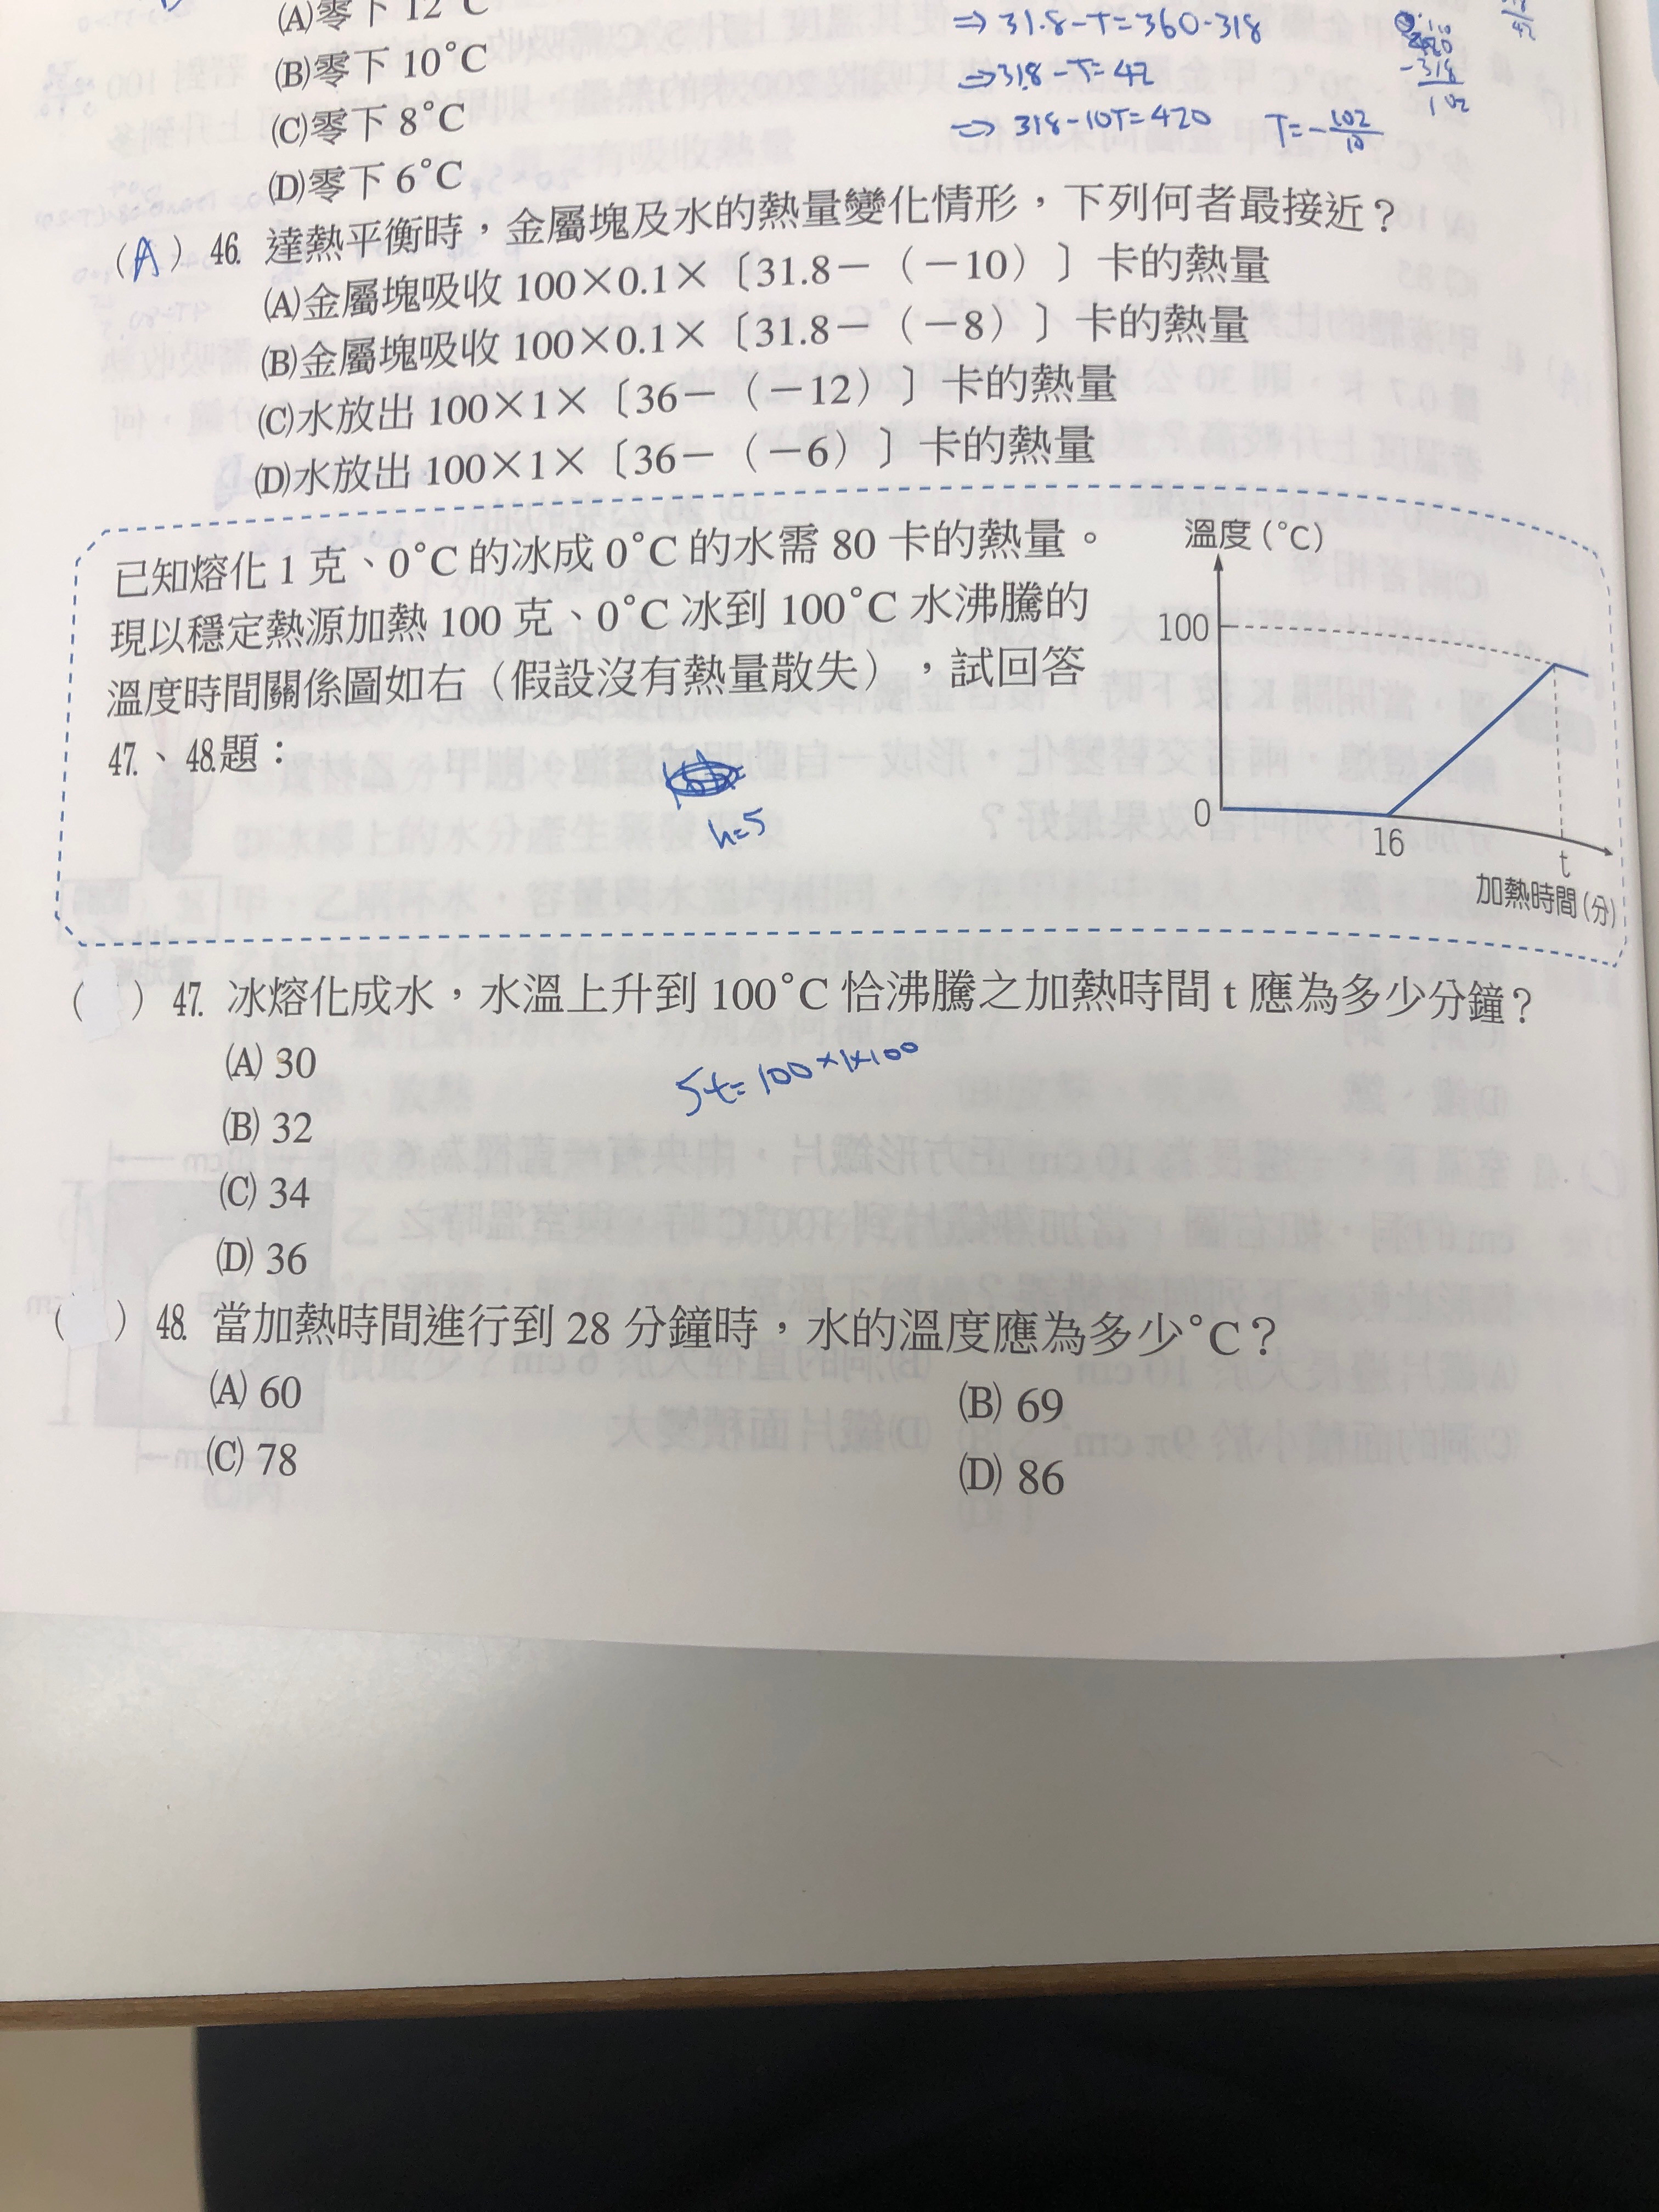 (A)零下 12°C
(B)零下 10°C
(C)零下 8°C
(D)零下 6°C
⇒ 31.8-T=360-318
⇒31.8-T=42
⇒ 318-10T=420 T=-102/10
-318
102
(A) 46. 達熱平衡時，金屬塊及水的熱量變化情形，下列何者最接近？
(A)金屬塊吸收 100×0.1×〔31.8－（－10）〕卡的熱量
(B)金屬塊吸收 100×0.1×〔31.8－（－8）〕卡的熱量
(C)水放出 100×1×〔36－（－12）〕卡的熱量
(D)水放出 100×1×〔36－（－6）〕卡的熱量
已知熔化 1 克、0°C 的冰成 0°C 的水需 80 卡的熱量。
現以穩定熱源加熱 100 克、0°C 冰到 100°C 水沸騰的
溫度時間關係圖如右（假設沒有熱量散失），試回答
47.、48.題：
h=5
溫度(°C)
100
0
16
t
加熱時間(分)
( ) 47. 冰熔化成水，水溫上升到 100°C 恰沸騰之加熱時間 t 應為多少分鐘？
(A) 30
5t=100×1×100
(B) 32
(C) 34
(D) 36
( ) 48. 當加熱時間進行到 28 分鐘時，水的溫度應為多少°C？
(A) 60
(B) 69
(C) 78
(D) 86